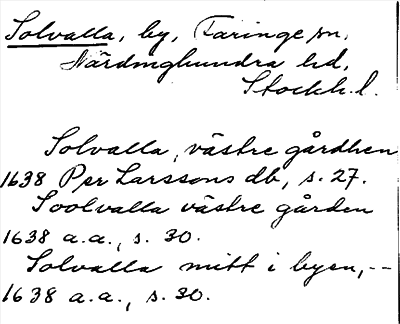 Solvalla, by, Faringe sn,
Närdinghundra hd,
Stockh. l.
Solvalla, västre gårdhen
1638 Per Larssons db, s. 27.
Soolvalla västre gården
1638 a.a., s. 30.
Solvalla mitt i byen, --
1638 a.a., s. 30.